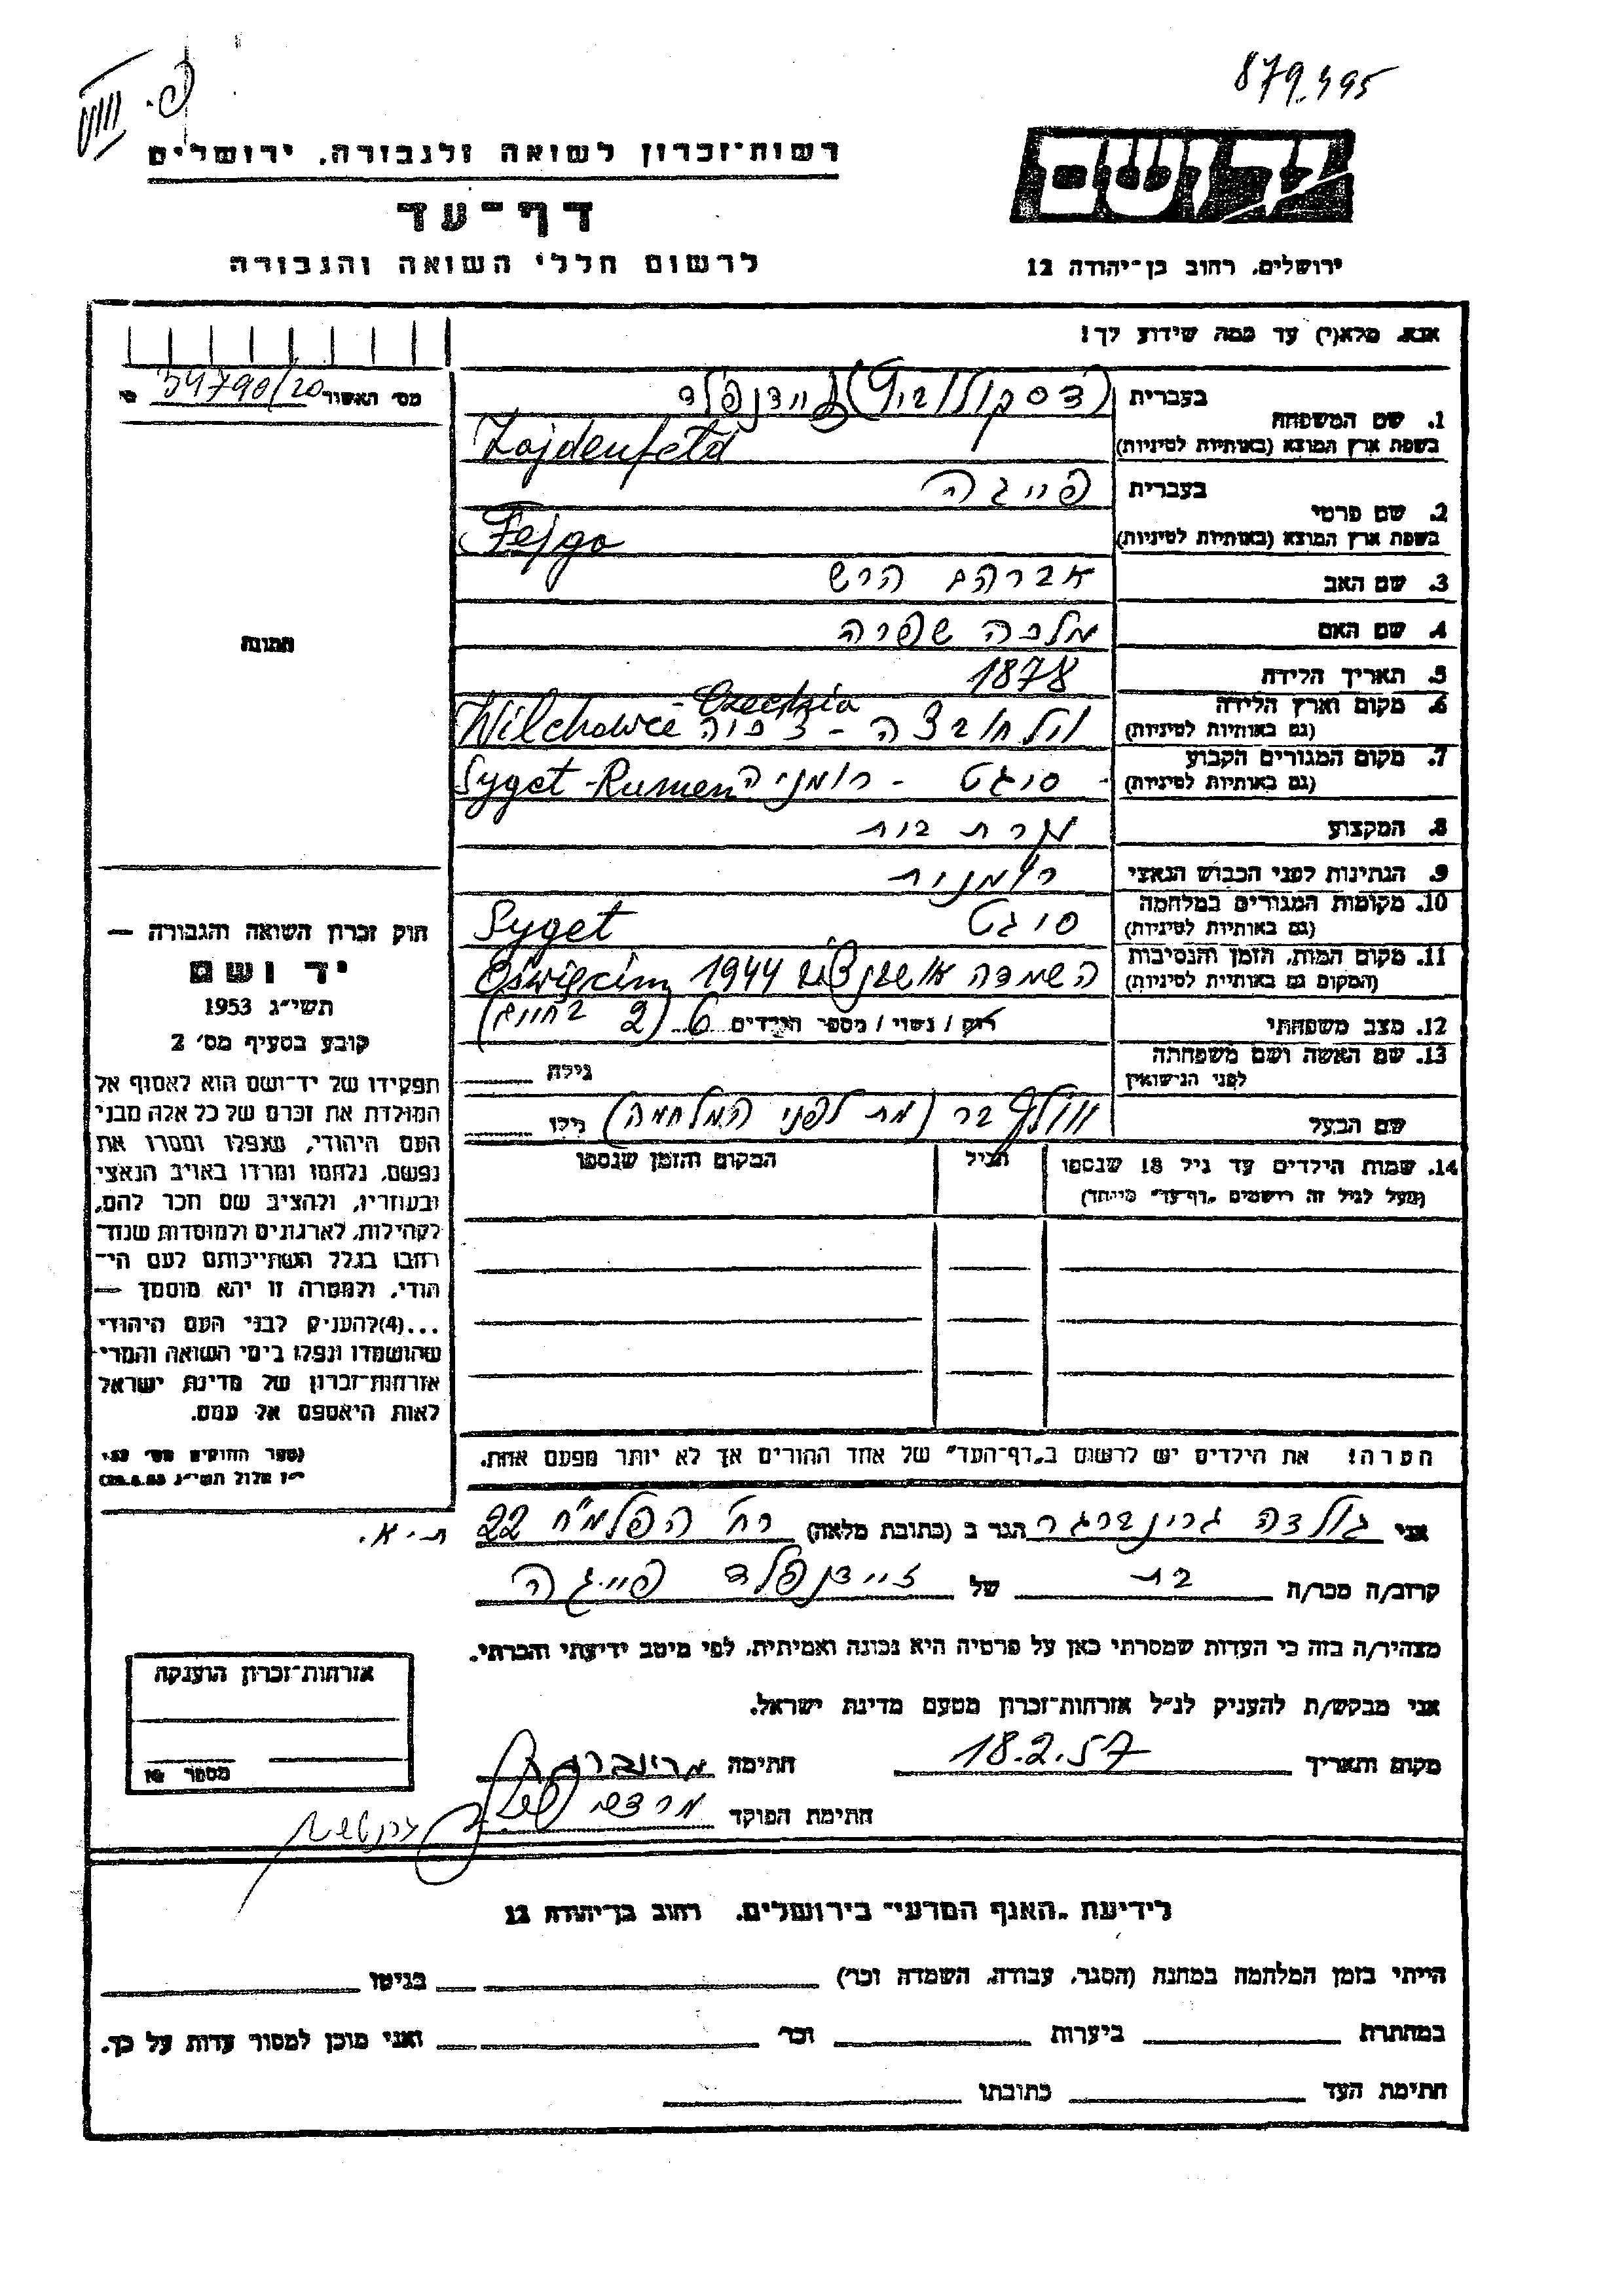 879495
פ. VIII
יד ושם
רשות־זכרון לשואה ולגבורה, ירושלים
דף־עד
לרשום חללי השואה והגבורה
ירושלים, רחוב בן־יהודה 12
אנא, מלא(י) עד כמה שידוע לך!
מס׳ האשור 34790/20
1. שם המשפחה
בעברית זיידנפלד
בשפת ארץ המוצא (באותיות לטיניות) Zajdenfeld
2. שם פרטי
בעברית פייגה
בשפת ארץ המוצא (באותיות לטיניות) Fejga
3. שם האב אברהם הרש
4. שם האם מלכה שפרה
5. תאריך הלידה 1878
6. מקום וארץ הלידה
(גם באותיות לטיניות) צ׳כיה - Wilchowce - Czechzia
7. מקום המגורים הקבוע
(גם באותיות לטיניות) סיגט - רומניה Syget - Rumen
8. המקצוע עקרת בית
9. הנתינות לפני הכבוש הנאצי רומנית
10. מקומות המגורים במלחמה
(גם באותיות לטיניות) סיגט Syget
11. מקום המות, הזמן והנסיבות
(המקום גם באותיות לטיניות) השמדה אושויץ 1944 Oświęcim
12. מצב משפחתי רוק / נשוי / מספר הילדים 6 (2 בחיים)
13. שם האשה ושם משפחתה
לפני הנישואין גילה
שם הבעל וולף בר (מת לפני המלחמה) גילו
14. שמות הילדים עד גיל 18 שנספו
(מעל לגיל זה רושמים "דף־עד" מיוחד)
הגיל
המקום והזמן שנספו
הערה! את הילדים יש לרשום ב"דף־העד" של אחד ההורים אך לא יותר מפעם אחת.
תמונה
חוק זכרון השואה והגבורה —
יד ושם
תשי״ג 1953
קובע בסעיף מס׳ 2
תפקידו של יד־ושם הוא לאסוף אל
המולדת את זכרם של כל אלה מבני
העם היהודי, שנפלו ומסרו את
נפשם, נלחמו ומרדו באויב הנאצי
ובעוזריו, ולהציב שם וזכר להם,
לקהילות, לארגונים ולמוסדות שנח־
רבו בגלל השתייכותם לעם הי־
הודי, ולמטרה זו יהא מוסמך —
...(4) להעניק לבני העם היהודי
שהושמדו ונפלו בימי השואה והמרי
אזרחות־זכרון של מדינת ישראל
לאות היאספם אל עמם.
(ספר החוקים מס׳ 132
י״ז אלול תשי״ג 28.8.53)
אני גולדה גרינברגר הגר ב (כתובת מלאה) רח׳ הפלמ״ח 22 ת-א.
קרוב/ה מכר/ה בת של זיידנפלד פייגה
מצהיר/ה בזה כי העדות שמסרתי כאן על פרטיה היא נכונה ואמיתית, לפי מיטב ידיעתי והכרתי.
אני מבקש/ת להעניק לנ״ל אזרחות־זכרון מטעם מדינת ישראל.
מקום ותאריך 18.2.57 חתימה
חתימת הפוקד
אזרחות־זכרון הוענקה
מספר
לידיעת "האגף המדעי" בירושלים, רחוב בן־יהודה 12
הייתי בזמן המלחמה במחנה (הסגר, עבודה, השמדה וכו׳) בגיטו
במחתרת ביערות וכו׳ ואני מוכן למסור עדות על כך.
חתימת העד כתובתו